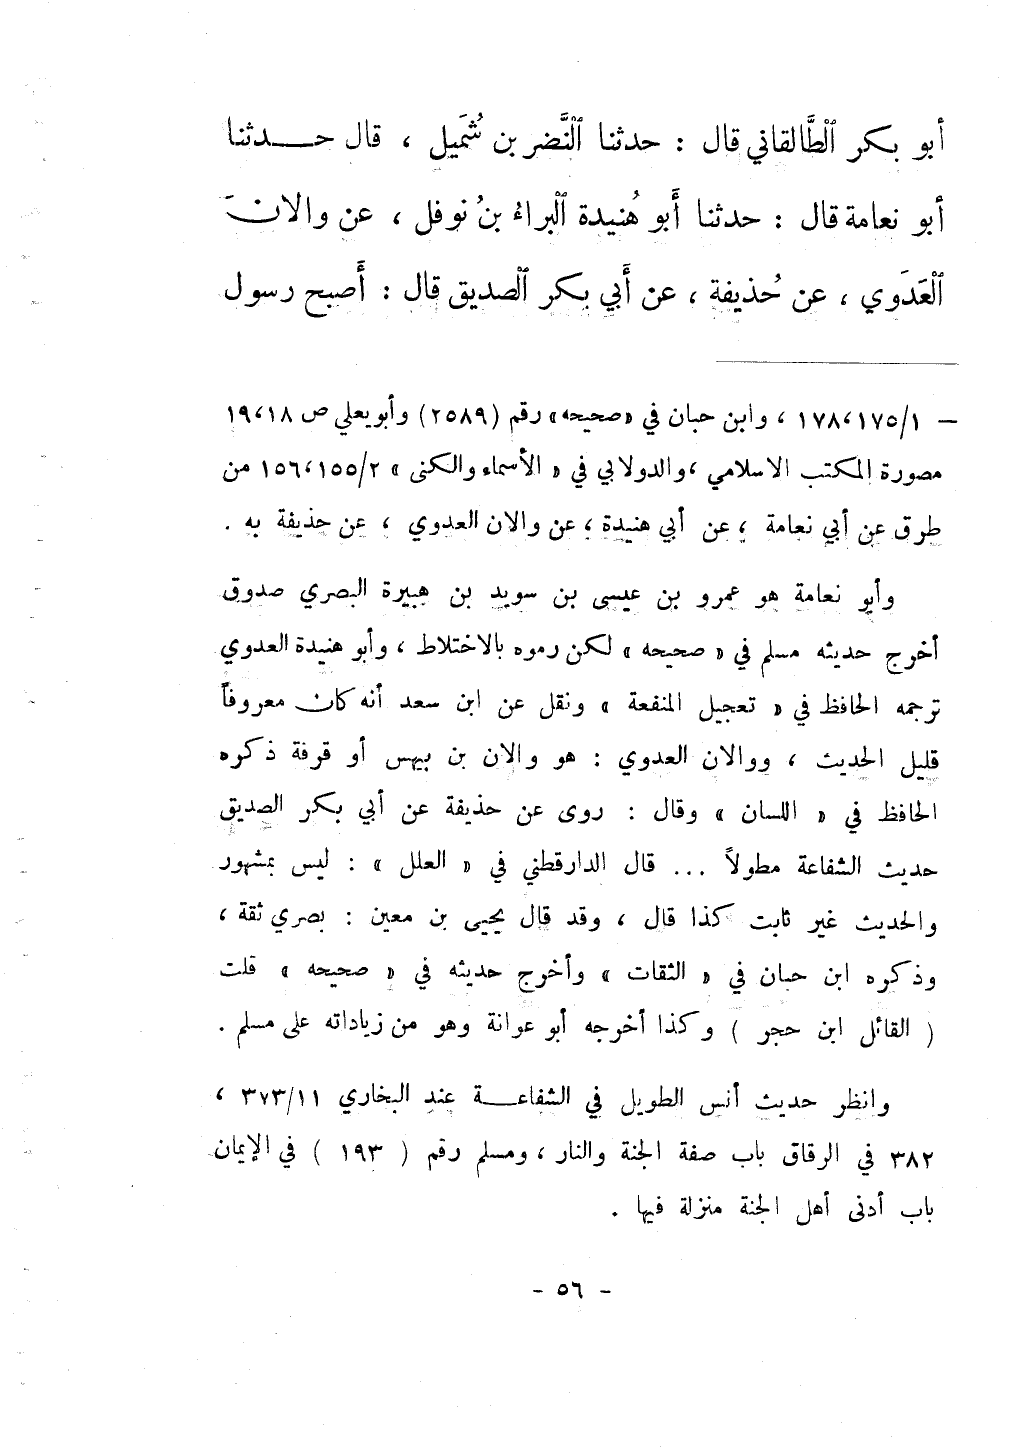 أبو بكر ٱلطَّالقاني قال : حدثنا ٱلنَّضر بن شُمَيل ، قال حـــدثنا
أبو نعامة قال : حدثنا أَبو هُنيدة ٱلبراءُ بنُ نوفل ، عن والانَ
ٱلعَدَوي ، عن حُذيفة ، عن أَبي بكر ٱلصديق قال : أَصبح رسول
— ١٧٨،١٧٥/١ ، وابن حبان في «صحيحه» رقم (٢٥٨٩) وأبويعلي ص ١٩،١٨
مصورة المكتب الاسلامي ،والدولابي في « الأسماء والكنى » ١٥٦،١٥٥/٢ من
طرق عن أبي نعامة ، عن أبي هنيدة ، عن والان العدوي ، عن حذيفة به .
وأبو نعامة هو عمرو بن عيسى بن سويد بن هبيرة البصري صدوق
أخرج حديثه مسلم في « صحيحه » لكن رموه بالاختلاط ، وأبو هنيدة العدوي
ترجمه الحافظ في « تعجيل المنفعة » ونقل عن ابن سعد أنه كان معروفاً
قليل الحديث ، ووالان العدوي : هو والان بن بيهس أو قرفة ذكره
الحافظ في « اللسان » وقال : روى عن حذيفة عن أبي بكر الصديق
حديث الشفاعة مطولاً ... قال الدارقطني في « العلل » : ليس بمشهور
والحديث غير ثابت كذا قال ، وقد قال يحيى بن معين : بصري ثقة ،
وذكره ابن حبان في « الثقات » وأخرج حديثه في « صحيحه » قلت
( القائل ابن حجر ) وكذا أخرجه أبو عوانة وهو من زياداته على مسلم .
وانظر حديث أنس الطويل في الشفاعـــة عند البخاري ٣٧٣/١١ ،
٣٨٢ في الرقاق باب صفة الجنة والنار ، ومسلم رقم ( ١٩٣ ) في الإيمان
باب أدنى أهل الجنة منزلة فيها .
- ٥٦ -